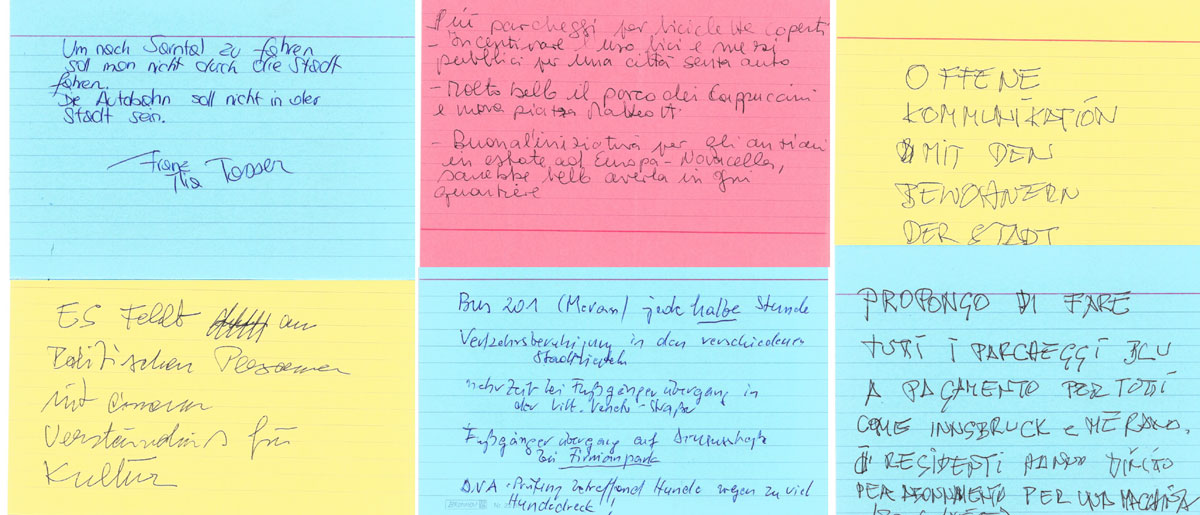 Um nach Sarntal zu fahren
soll man nicht durch die Stadt
fahren.
Die Autobahn soll nicht in der
Stadt sein.
Franz
Tosser
Più parcheggi per biciclette coperti
- Incentivare l'uso bici e mezzi
pubblici per una città senza auto
- Molto bello il parco dei Cappuccini
e nuova piazza Matteotti
- Buona l'iniziativa per gli anziani
in estate ad Europa-Novacella,
sarebbe bello averla in ogni
quartiere
OFFENE
KOMMUNIKATION
MIT DEN
BEWOHNERN
DER STADT
ES Fehlt an
Politischen Personen
mit
Verständnis für
Kultur
Bus 201 (Meran) jede halbe Stunde
Verkehrsberuhigung in den verschiedenen
Stadtvierteln
mehr Zeit bei Fußgängerübergang in
der Vitt. Veneto-Straße
Fußgängerübergang auf Drususstraße
bei Firmianpark
DNA-Prüfung betreffend Hunde wegen zu viel
Hundedreck!
PROPONGO DI FARE
TUTTI I PARCHEGGI BLU
A PAGAMENTO PER TUTTI
COME INNSBRUCK e MERANO.
I RESIDENTI HANNO DIRITTO
PER ABBONAMENTO PER UNA MACCHINA